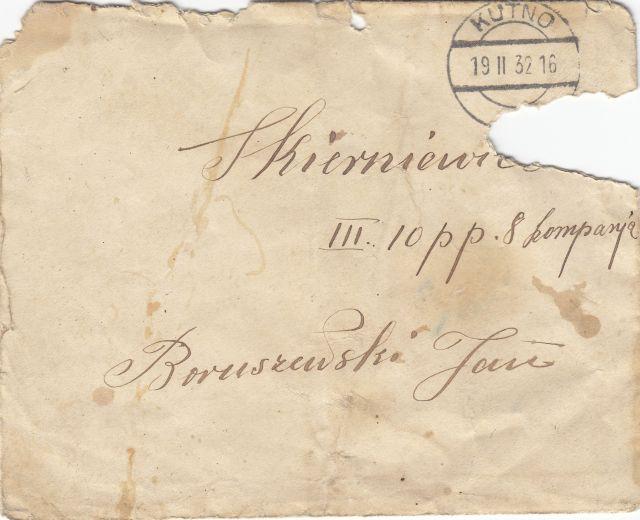 KUTNO
19 II 32 16
Skierniewic
III. 10 pp. 8 kompanja
Boruszewski Jan